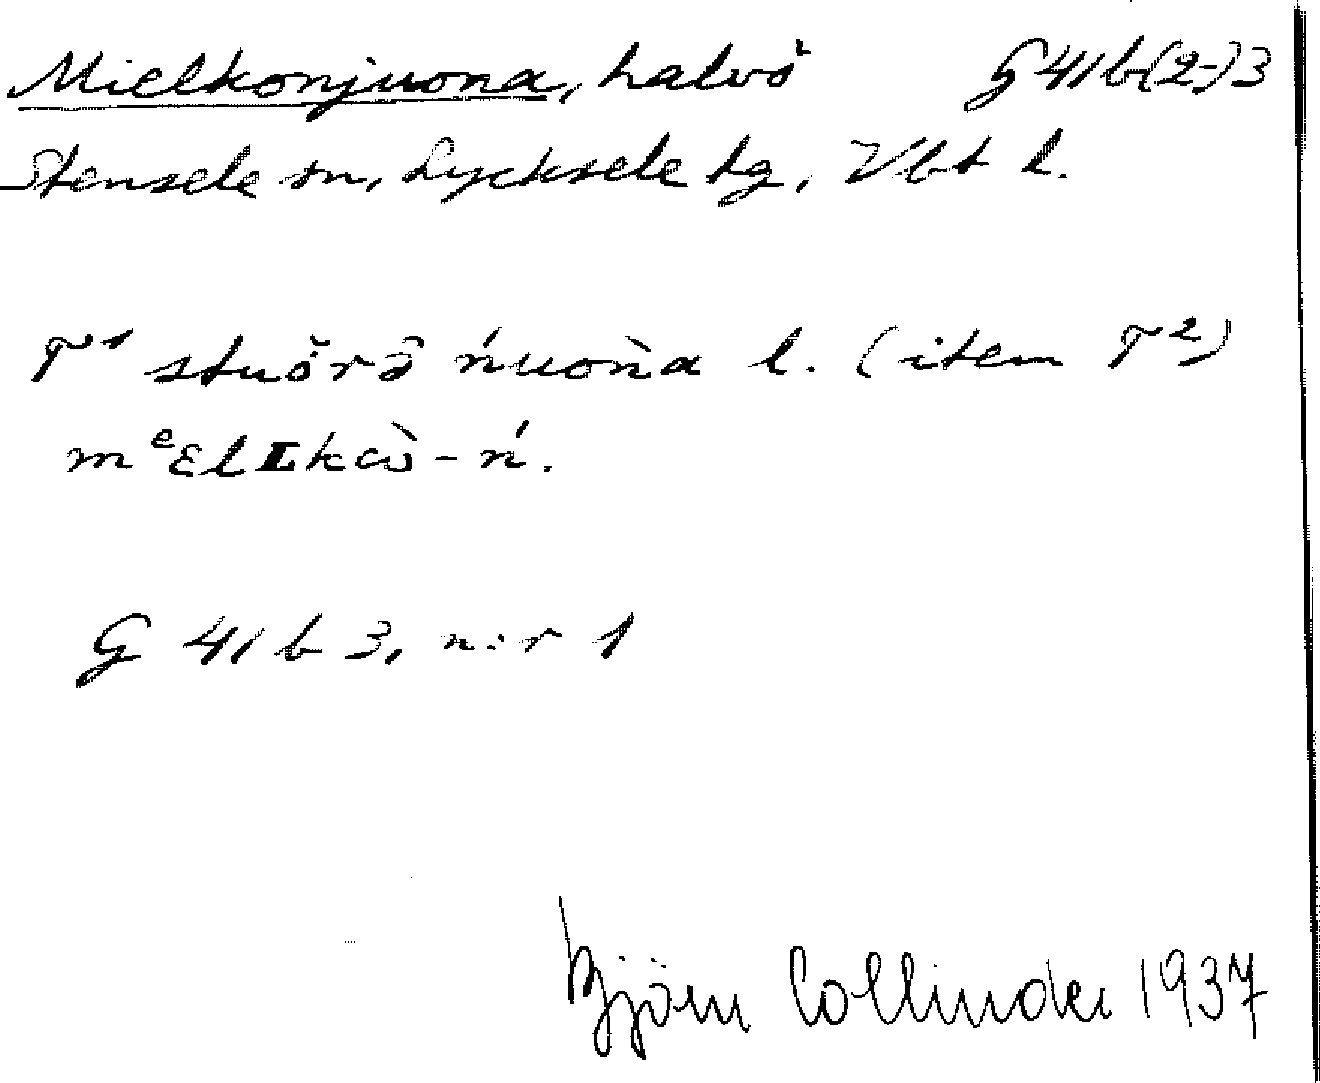 Mielkonjuona, halvö G 41 b (2-) 3
Stensele sn, Lycksele tg, Vbt l.
T¹ stuŏrɔ̂ ńuoǹa l. (item T²)
mᵉɛlʟkɷ̀-ń.
G 41 b 3, n:r 1
Björn Collinder 1937